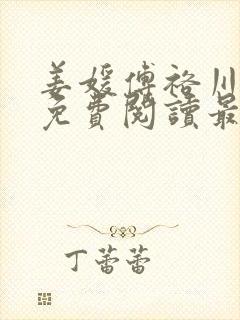 姜媛傅裕川
免費閱讀最
丁蕾蕾